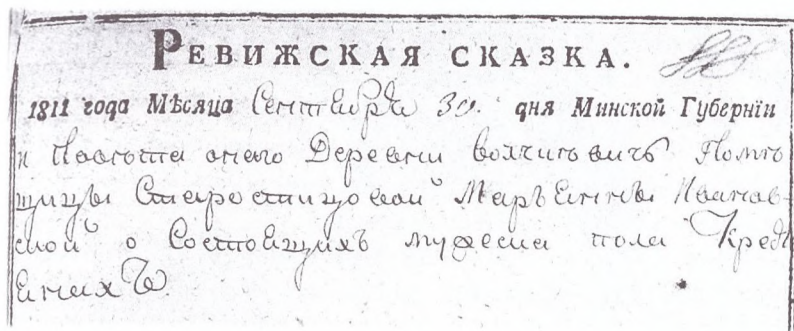 РЕВИЖСКАЯ СКАЗКА.
1811 года Мѣсяца Сентебря 30. дня Минской Губернїи
и Повѣта онаго Деревни волчиковичъ Помѣ
щицы Старостицовой Марѣенны Иванов-
ской о Состоещихъ мужеска пола Кредь
енихъ